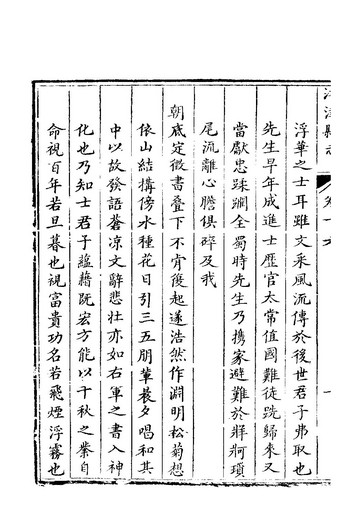 浮華之士耳雖文采風流傳於後世君子弗取也
先生早年成進士歷官太常值國難徒跣歸來又
當獻忠蹂躪全蜀時先生乃擕家避難於牂牁瑣
尾流離心膽俱碎及我
朝底定徵書叠下不肯復起遂浩然作淵明松菊想
依山結搆傍水種花日引三五朋輩晨夕唱和其
中以故發語蒼凉文辭悲壯亦如右軍之書入神
化也乃知士君子蘊藉既宏方能以千秋之業自
命視百年若旦暮也視富貴功名若飛煙浮霧也